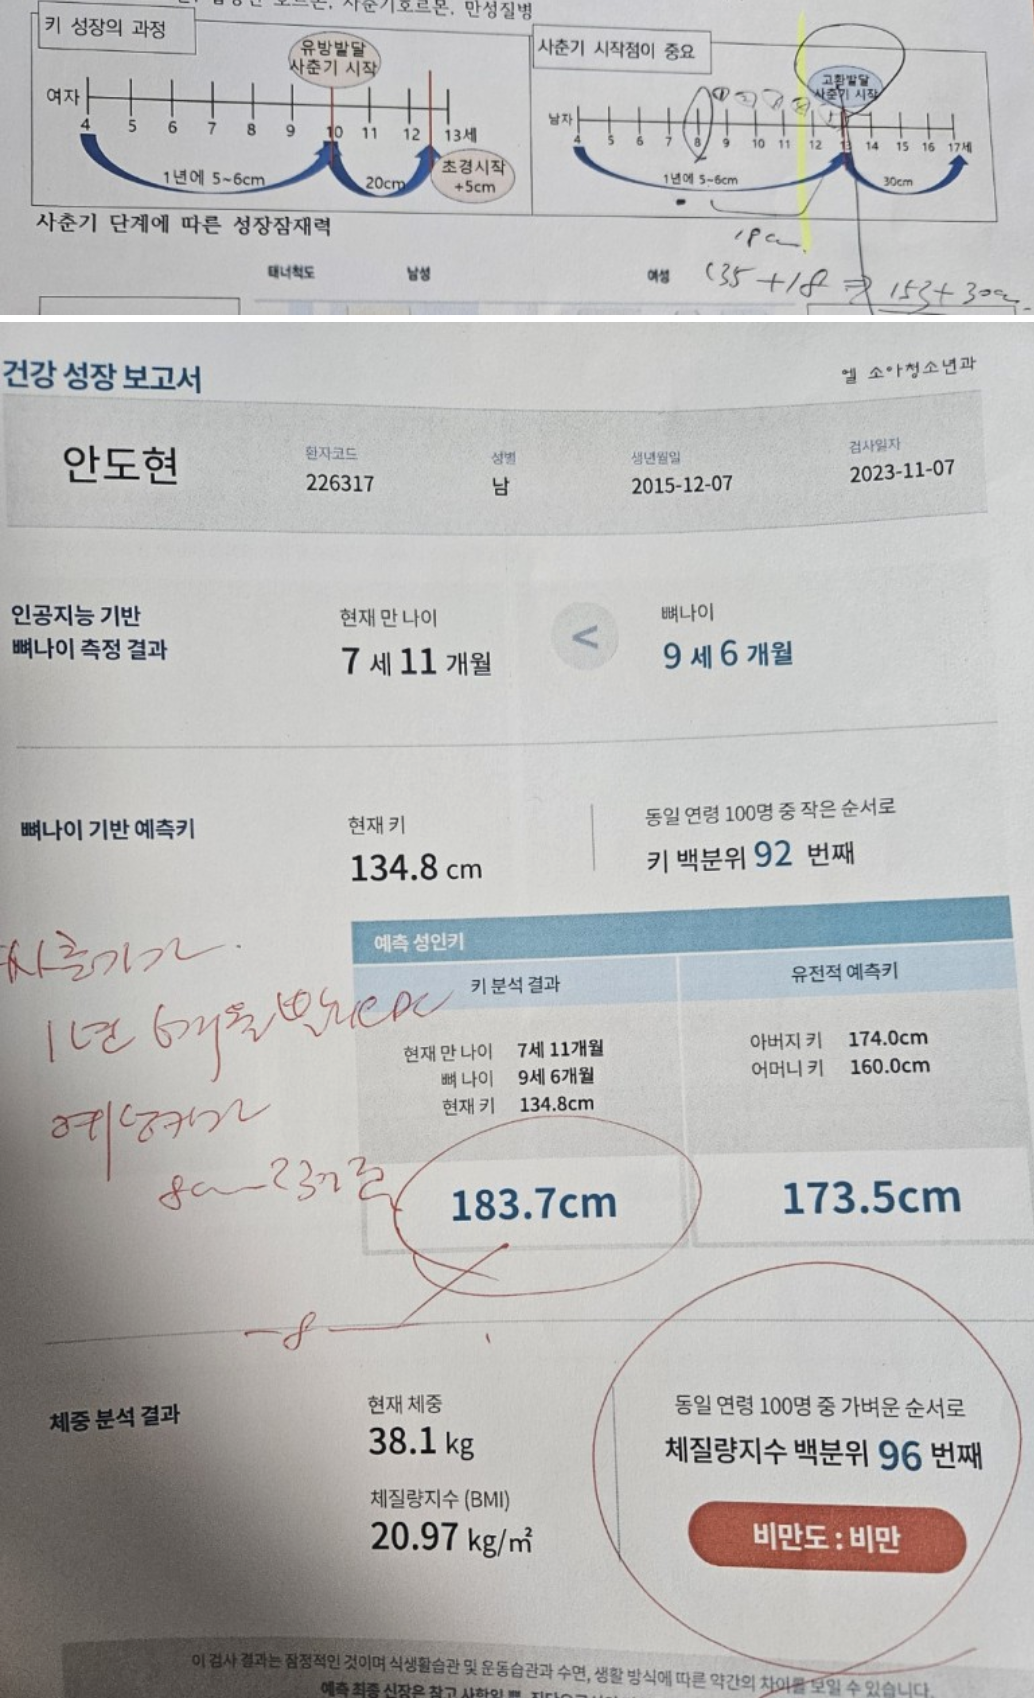 사춘기호르몬, 만성질병
키 성장의 과정
유방발달
사춘기 시작
여자
4 5 6 7 8 9 10 11 12 13세
1년에 5~6cm
20cm
초경시작
+5cm
사춘기 시작점이 중요
고환발달
사춘기 시작
남자
4 5 6 7 8 9 10 11 12 13 14 15 16 17세
1년에 5~6cm
30cm
18cm
135+18 ⇒ 153+30cm
사춘기 단계에 따른 성장잠재력
태너척도 남성 여성
건강 성장 보고서
엘 소아청소년과
안도현
환자코드
226317
성별
남
생년월일
2015-12-07
검사일자
2023-11-07
인공지능 기반
뼈나이 측정 결과
현재 만 나이
7 세 11 개월
<
뼈나이
9 세 6 개월
뼈나이 기반 예측키
현재 키
134.8 cm
동일 연령 100명 중 작은 순서로
키 백분위 92 번째
사춘기가
1년 6개월 빨라
예상키가
예측 성인키
키 분석 결과
현재 만 나이 7세 11개월
뼈 나이 9세 6개월
현재 키 134.8cm
183.7cm
유전적 예측키
아버지 키 174.0cm
어머니 키 160.0cm
173.5cm
-8
체중 분석 결과
현재 체중
38.1 kg
체질량지수 (BMI)
20.97 kg/㎡
동일 연령 100명 중 가벼운 순서로
체질량지수 백분위 96 번째
비만도 : 비만
이 검사 결과는 잠정적인 것이며 식생활습관 및 운동습관과 수면, 생활 방식에 따른 약간의 차이를 보일 수 있습니다.
예측 최종 신장은 참고 사항일 뿐,